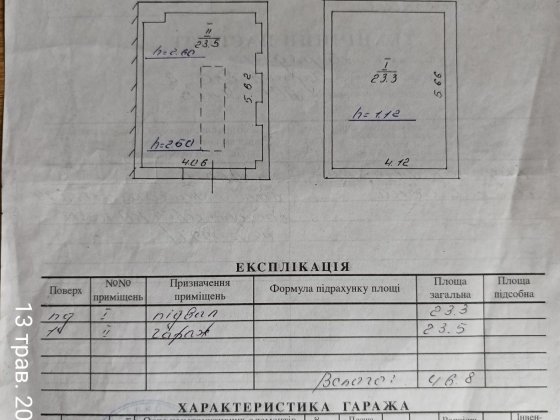 II
23.5
h=2.60
5.82
h=260
4.06
I
23.3
5.66
h=1.12
4.12
ЕКСПЛІКАЦІЯ
Поверх №№ приміщень Призначення приміщень Формула підрахунку площі Площа загальна Площа підсобна
пд I підвал 23.3
1й II гараж 23.5
Всього: 46.8
ХАРАКТЕРИСТИКА ГАРАЖА
13 трав. 20